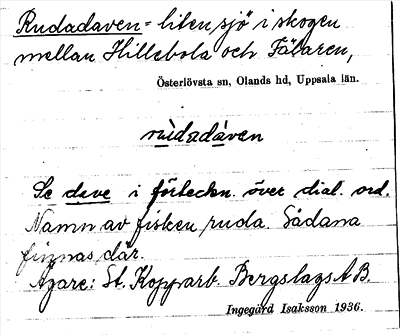 Rudadaven = liten sjö i skogen
mellan Hillebola och Fälaren,
Österlövsta sn, Olands hd, Uppsala län.
rùdadáven
Se dave i förteckn. över dial. ord.
Namn av fisken ruda. Sådana
finnas där.
Ägare: St. Kopparb. Bergslags A.B.
Ingegärd Isaksson 1936.